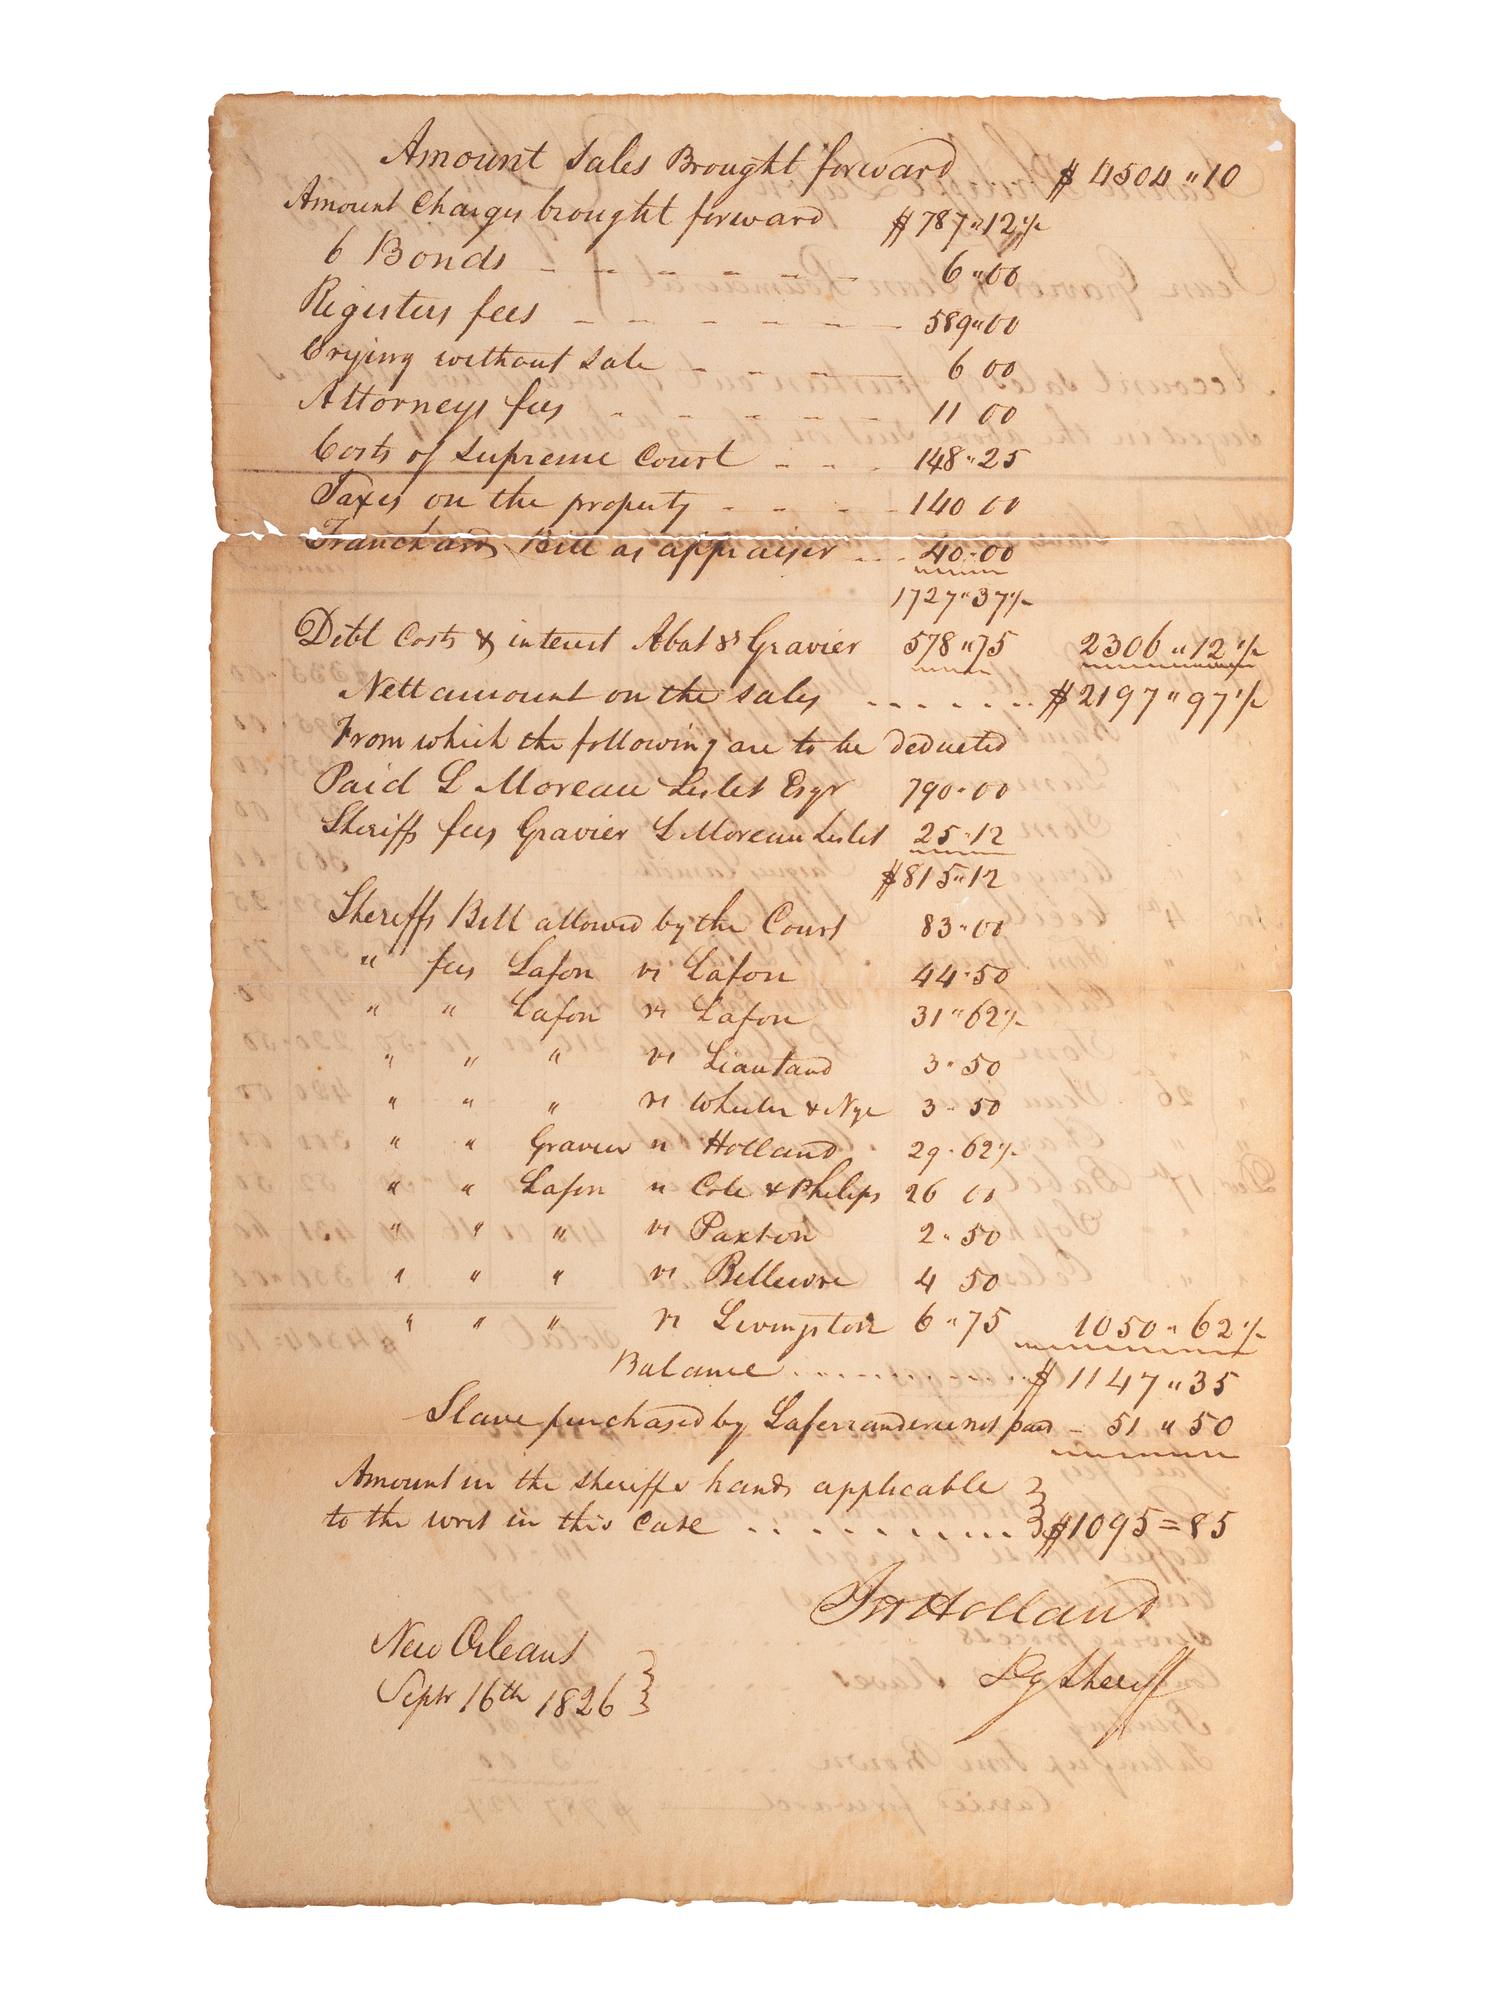 Amount Sales Brought forward . . . $ 4504 " 10
Amount Charges brought forward $ 787 " 12 1/2
6 Bonds 6 " 00
Registers fees 589 " 00
Crying without Sale 6 00
Attorneys fees 11 00
Costs of Supreme Court 148 " 25
Taxes on the property 140 00
Bill as appraiser 40 " 00
1727 " 37 1/2
Debt Costs & interest Abat vs Gravier 578 " 75 2306 " 12 1/2
Nett amount on the sales . . . . . . $ 2197 " 97 1/2
From which the following are to be deducted
Paid L Moreau Lislet Esqr 790 " 00
Sheriffs fees Gravier L Moreau Lislet 25 " 12
$ 815 " 12
Sheriffs Bill allowed by the Court 83 " 00
" fees Lafon vs Lafon 44 " 50
" " Lafon vs Lafon 31 " 62 1/2
" " " vs Liautaud 3 " 50
" " " vs Wheeler & Nye 3 " 50
" " Gravier " Holland 29 " 62 1/2
" " Lafon " Cole & Philips 26 00
" " " vs Paxton 2 " 50
" " " vs 4 50
" " " vs Livingston 6 " 75 1050 " 62 1/2
Balance . . . . . . . . . $ 1147 " 35
Slave purchased by not paid - 51 " 50
Amount in the sheriffs hands applicable
to the writ in this Case . . . . . . . . . $ 1095 = 85
Holland
Dy Sheriff
New Orleans
Septr 16th 1826